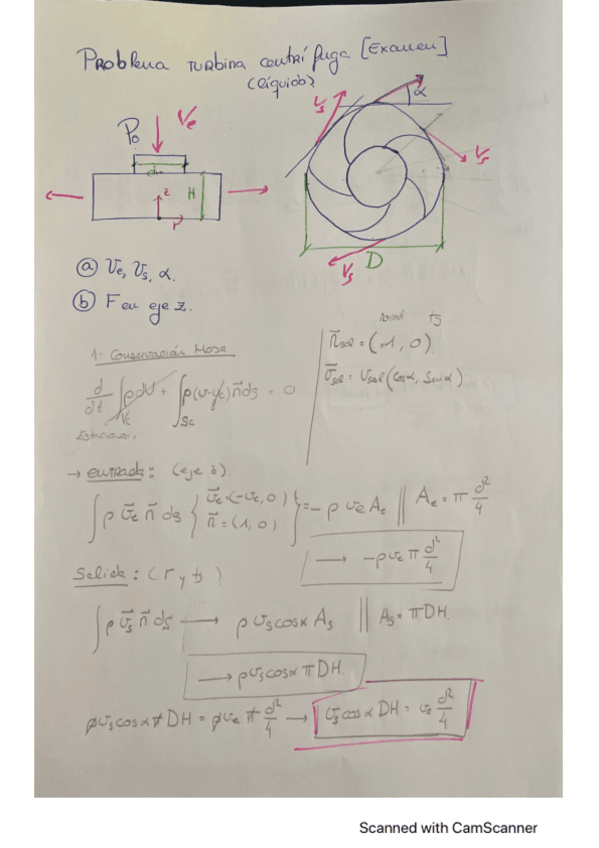 PROBLEMA TURBINA CENTRÍFUGA [EXAMEN]
(líquido)
P₀ Ve
d
H
z
r
Vs α
Vs
Vs
D
ⓐ Ve, Vs, α.
ⓑ F en eje z.
1- Conservación Masa
d/dt ∫ρdV + ∫ρ(v-vc)n⃗ds = 0
Vc Sc
Estacionar.
n⃗sal = (1, 0)
v⃗sal = Vsal(cosα, senα)
→ entrada: (eje z).
∫ρ v⃗e n⃗ ds { v⃗e·(-ve,0) n⃗=(1,0) } = -ρ ve Ae || Ae = π d²/4
→ -ρve π d²/4
Salida: (r y tg)
∫ρ v⃗s n⃗ ds → ρ vs cosα As || As = πDH.
→ ρvs cosα πDH.
ρvs cosα π DH = ρve π d²/4 → vs cosα DH = ve d²/4
Scanned with CamScanner